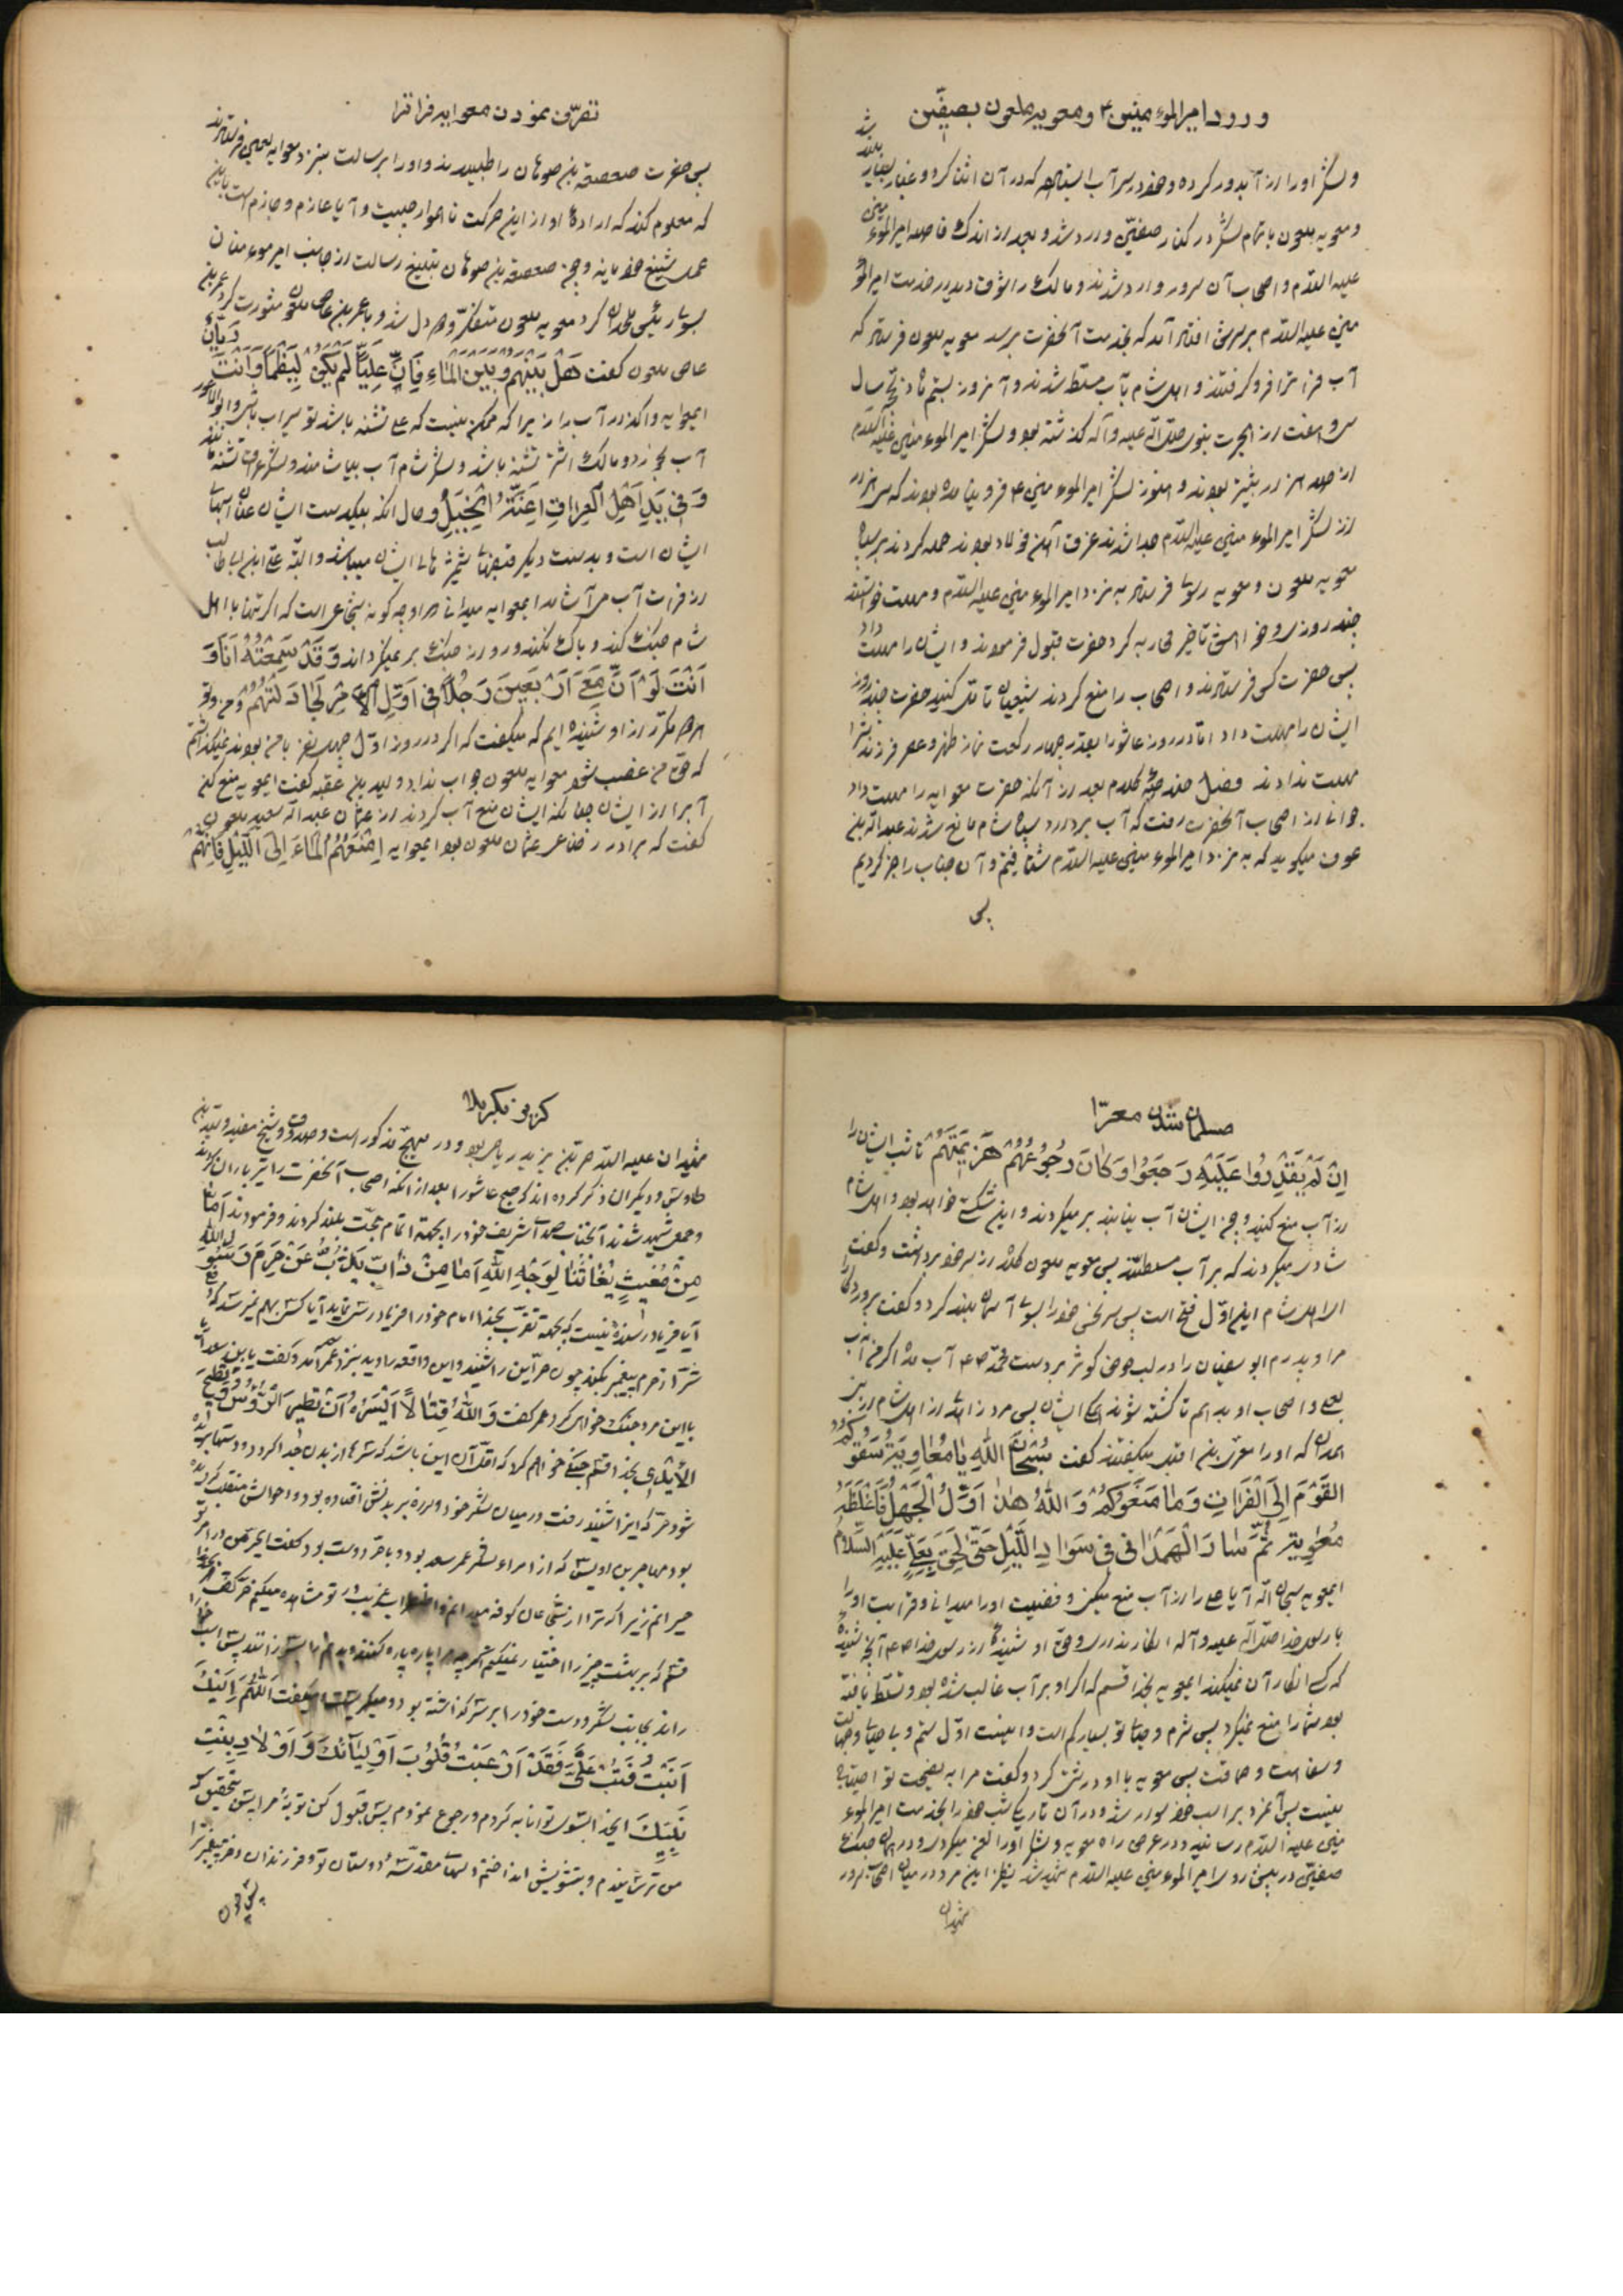 ورود امیرالموءمنین ۴ و معویه ملعون بصفّین
ولشکر اورا از آب دور کرده و خود در سر آب ایستاد که در آن اثنا کرد و غبار بسیار بلند شد
و معویه ملعون با تمام لشکر در کنار صفّین وارد شد و بعد از اندک فاصله امیرالموء منین
علیه السّلام و اصحاب آن سرور وارد شدند و مالک در خدمت امیرالمؤ
منین علیه السّلام بر سرش افتد آمد که بخدمت آنحضرت برسد معویه ملعون فرستاد که
آب فرات را فرو گرفتند و اهل شام بآب مسلّط شدند و آنروز بیستم ماه ذیحجّه سال
سی و هفت از هجرت نبوی صلّی الله علیه وآله گذشته بود و لشکر امیرالموء منین علیه السّلام
از صد هزار بیشتر بودند و هنوز لشکر امیرالموء منین ۴ فرو نیامده بودند که سی هزار
از لشکر امیرالموء منین علیه السّلام جدا شدند غرق آهن و فولاد بودند حمله کردند بر سپاه
معویه ملعون و معویه رسولی فرستاد به نزد امیرالموء منین علیه السّلام و مهلت خواستند
چند روزی و خواهش تأخیر محاربه کرد حضرت قبول فرمودند و ایشان را مهلت داد
پس حضرت کسی فرستادند و اصحاب را منع کردند شیعیان تأمّل کنید حضرت چند روز
ایشان را مهلت داد امّا در روز عاشورا بقدر چهار رکعت نماز ظهر و عصر فرزندش را
مهلت ندادند فصل کلام بعد از آنکه حضرت معوایه را مهلت داد
جوانی از اصحاب آنحضرت رفت که آب بردارد سپاه شام مانع شدند عبدالله بن
عوف میگوید که به نزد امیرالموء منین علیه السّلام شتافتم و آن جناب را خبر کردیم
پس
تصرّف نمودن معوایه فراترا
پس حضرت صعصعة بن صوحان را طلبیدند و اورا برسالت بنزد معوایه لعین فرستادند
که معلوم کند که اراده او از این حرکت ناهموار چیست و آیا عازم و جازم است باین
عمل شنیع خود یا نه و چون صعصعة بن صوحان تبلیغ رسالت از جانب امیر موءمنان
بسوی رئیس ملحدان کرد معویه ملعون متفکّر و دو دل شد و با عمر بن عاص ملعون مشورت کرد عمر بن
عاص ملعون گفت هَلْ بَیْنَهُمْ وَبَیْنَ الْمَاءِ فَاِنَّ عَلِیّاً لَمْ یَکُنْ لِیَظْمَأ وَاَنْتَ رَیّان
ایمعوایه واگذار آب را زیرا که ممکن نیست که علی تشنه باشد تو سیراب باشی و ابوالاعور
آب بخورد و مالک اشتر تشنه باشد و لشکر شام آب بیاشامند و لشکر عراق تشنه مانند
وَفی یَدِ اَهْلِ الْعِراقِ اَعِنَّةُ الْخَیْلِ و حال آنکه بیکدست ایشان عنان اسبهای
ایشان است و بدست دیگر قبضهای شمشیرهای ایشان میباشد و البتّه علی ابن ابیطالب
از فرات آب می آشامد ایمعوایه میدانی مر او چگونه شجاعی است که اگر تنها با اهل
شام جنگ کند و باک نکند و رو از جنگ بر نمیگرداند وَقَدْ سَمِعْتُهُ اَنَا وَ
اَنْتَ لَوْ اَنَّ مَعی اَرْبَعینَ رَجُلاً فی اَوَّلِ الْاَمْرِ لَجاهَدْتُهُمْ و من و تو
هر دو مکرّر از او شنیده ایم که میگفت که اگر در روز اوّل چهل نفر با من بودند نمیگذاشتم
که حقّ من غصب شود معوایه ملعون جواب نداد ولید بن عقبه گفت ایمعویه منع کن
آبرا از ایشان چنانکه ایشان منع آب کردند از عثمان عبدالله سعید ملعون
گفت که برادر رضاعی عثمان ملعون بود ایمعوایه اِمْنَعْهُمُ الْمَاءَ اِلَی اللَّیْلِ فَاِنَّهُمْ
مسلمان شدن معرّا
اِنْ لَمْ یَقْدِرُوا عَلَیْهِ رَجَعُوا وَکانَ رُجُوعُهُمْ هَزیمَتَهُمْ تا شب ایشان را
از آب منع کنید و چون ایشان آب نیابند بر میگردند و این شکستی خواهد بود و اهل شام
شادی میکردند که بر آب مسلّطند پس معویه ملعون کلاه از سر خود برداشت و گفت
ای اهل شام این اوّل فتح است پس سر نحس خود را بسوی آسمان بلند کرد و گفت پروردگارا
مرا و پدرم ابو سفیان را در لب حوض کوثر بر دست محمّد ۴ آب مده اگر من آب
بعلی و اصحاب او بدهم تا کشته شوند همگی ایشان پس مردی از اهل شام از بنی
همدان که اورا معرّی بن اقبل میگفتند گفت سُبْحانَ اللهِ یامُعاوِیَةُ سَبَقُوکُمْ
الْقَوْمَ اِلَی الْفُراتِ وَمامَنَعُوکُمْ وَاللهِ هذا اَوَّلُ الْجَهْلِ فَاَغْلَظَهُ
مُعاوِیَة ثُمَّ سارَ الْهَمْدانی فی سَوادِ اللَّیْلِ حَتّی لَحِقَ بِعَلِیٍّ عَلَیْهِ السَّلامُ
ایمعویه سبحان الله آیا علی را از آب منع میکنی و فضیلت اورا میدانی و قرابت اورا
با رسول خدا صلّی الله علیه وآله انکار نداری و حقّ او شنیده از رسول خدا آنچه شنیده
که کسی انکار آن نمیکند ایمعویه بخدا قسم که اگر او بر آب غالب شده بود و تسلّط یافته
بود شما را منع نمیکرد پس شرم و حیای تو بسیار کم است و اینست اوّل ستم و بی حیائی و جهالت
و سفاهت و حماقت پس معویه با او درشتی کرد و گفت مرا به نصیحت تو احتیاج
نیست پس آنمرد بر اسب خود سوار شد و در آن تاریکی شب خود را بخدمت امیرالموء
منین علیه السّلام رسانید و در عرض راه معویه و لشکر اورا لعن میکرد و در همان جنگ
صفّین در پیش روی امیرالموء منین علیه السّلام شهید شد نظیر این مرد در میان اصحاب سرور
شهیدان
کربلا
شهیدان علیه السّلام حرّ بن یزید ریاحی بود و در مهیّج مذکور است و صدوق و شیخ مفید و سیّد بن
طاوس و دیگران ذکر کرده اند که صبح عاشورا بعد از آنکه اصحاب آنحضرت را تیر باران کردند
و جمعی شهید شدند آنجناب صدای شریف خود را بجهة اتمام حجّت بلند کردند و فرمودند اَما
مِنْ مُغیثٍ یُغیثُنا لِوَجْهِ اللهِ اَما مِنْ ذابٍّ یَذُبُّ عَنْ حَرَمِ رَسُولِ اللهِ
آیا فریاد رسنده نیست که بجهة تقرّب بخدا امام خود را فریاد رسی نماید آیا کسی بهم نمیرسد که دفع
شرّ از حرم پیغمبر بکند چون حرّ این را شنید و این واقعه را دید بنزد عمر آمد و گفت یا بن سعد آیا
با این مرد جنگ خواهی کرد عمر گفت وَاللهِ قِتالاً اَیْسَرُهُ اَنْ تَطیرَ الرُّؤُسُ وَتَطیحَ
الْاَیْدی بخدا قسم جنگی خواهم کرد که اقلّ آن این باشد که سرها از بدن جدا گردد و دستها بریده
شود حرّ که اینرا شنید رفت در میان لشکر خود و لرزه بر بدنش افتاده بود و احوالش متقلّب گردیده
بود مهاجر بن اویس که از امراء لشکر عمر سعد بود و با حرّ دوست بود گفت ایحرّ من در امر تو
حیرانم زیرا که ترا از شجاعان کوفه میدانم و اضطراب غریب در تو مشاهده میکنم حرّ گفت بخدا
قسم که بر بهشت چیزی را اختیار نمیکنم اگر چه مرا پاره پاره کنند و بدنم را بسوزانند پس اسب خود را
راند بجانب لشکر و دست خود را بر سر گذاشته بود و میگریست و میگفت اَللّهُمَّ اِلَیْکَ
اَنَبْتُ فَتُبْ عَلَیَّ فَقَدْ اَرْعَبْتُ قُلُوبَ اَوْلِیائِکَ وَاَوْلادِ بِنْتِ
نَبِیِّکَ ایخدا بسوی تو انابه کردم و رجوع نمودم پس قبول کن توبهٔ مرا پس بتحقیق که
من ترسانیدم و بتشویش انداختم دلهای مقدّسهٔ دوستان تو و فرزندان دختر پیغمبر ترا
پس چون